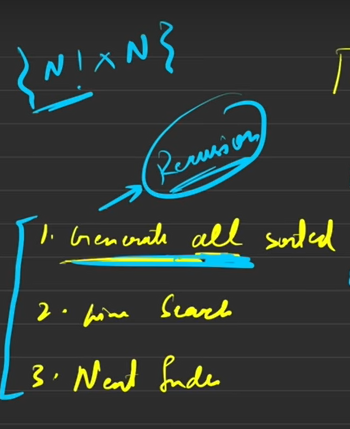 {N! × N}
Recursion
1. Generate all sorted
2. Linear Search
3. Next Index